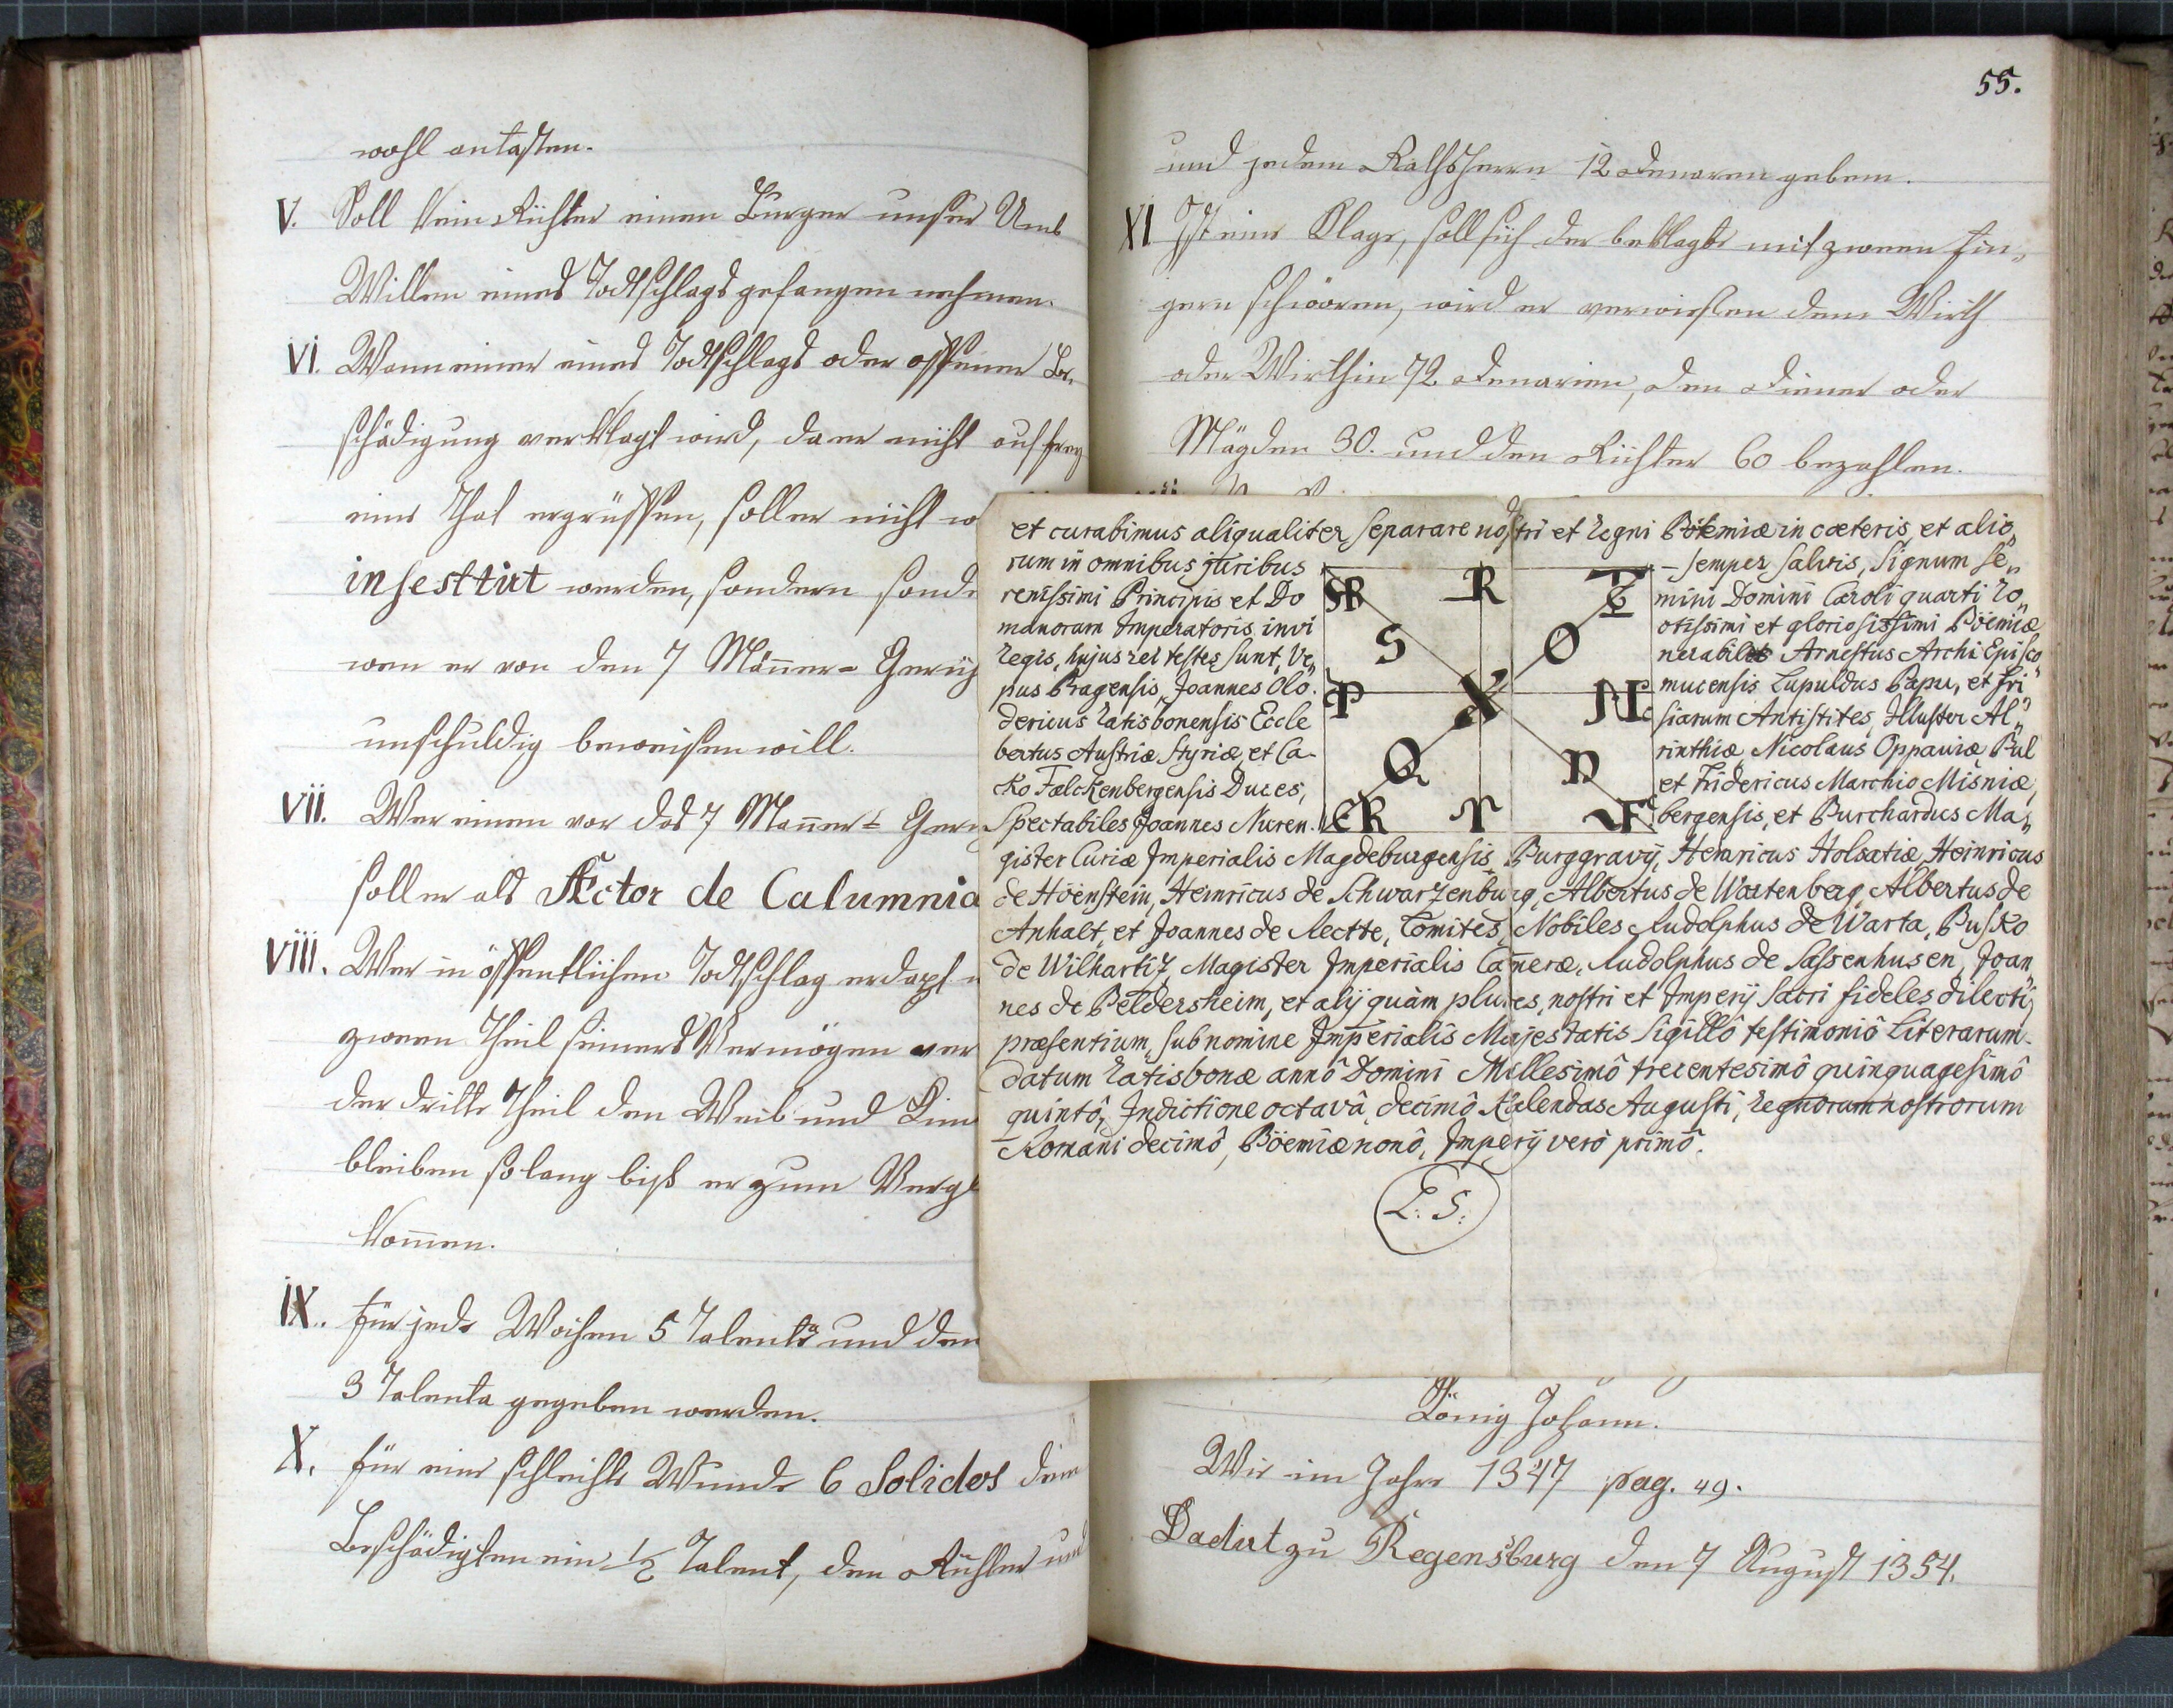 wohl antasten.
V. Soll kein Richter einen Burger unser Umb
Willen eines Todtschlags gefangen nehmen.
VI. Wann einer eines Todtschlags oder offener Be,
schädigung verklagt wird, da er nicht auf frey
einer That ergrüffen, soll er nicht
infesttirt werden, sondern
wen er von den 7 Männer=
unschuldig beweisen will.
VII. Wer einen vor das 7 Mañer=
soll er als Actor de Calumnia
VIII. Wer in öffentlichen Todtschlag erdapt
zween Theil seines Vermögen ver
der dritte Theil den Weib und Kin
bleiben so lang biß er zum Vergl
kommen.
IX. für jede Wochen 5 Talenta und den
3 Talenta gegeben werden.
X. für eine schlechte Wunde 6 Solidos dem
Beschädigten ein 1/2 Talent, den Richter und
55.
und jedem Rathsherrn 12 denaren geben.
XI Ist eine Klage, soll sich der beklagte mit zween fin,,
gern schwören, wird er verwiesen dem Wirth
oder Wirthin 72 denarien, den Diener oder
Mägden 30. und den Richter 60 bezahlen.
et curabimus aliqualiter separare nostri et Regni Böhemiæ in cæteris, et alio,,
rum in omnibus juribus – semper salvis, Signum Se,,
renissimi Principis et Do mini Domini Caroli quarti Ro,,
manorum Imperatoris invi ctissimi et gloriosissimi Böemiæ
Regis, hujus rei testes sunt, Ve,, nerabiles Arnestus Archi Episco,,
pus Pragensis, Joannes Olo,, mucensis Lupuldus Papu, et Fri,,
dericus Ratisbonensis Eccle siarum Antistites, Illuster Al,,
bertus Austriæ, Styriæ, et Ca- rinthiæ Nicolaus Oppaviæ Bul
Ko Falckenbergensis Duces, et Fridericus Marchio Misniæ,
Spectabiles Joannes Nuren. bergensis, et Burchardus Ma,,
R R T
S O
P X N
Q D
ER T F
gister Curiæ Imperialis Magdeburgensis Burggravij, Henricus Holsatiæ, Heinricus
de Höenstein, Heinricus de Schwarzenburg, Albertus de Wartenberg, Albertus de
Anhalt, et Joannes de Rectte, Comites, Nobiles Rudolphus de Warta, Busko
de Wilhartiz, Magister Imperialis Cameræ, Rudolphus de Sassenhusen, Joan,,
nes de Peldersheim, et alij quàm plures, nostri et Imperij Sacri fideles dilecti,
præsentium, sub nomine Imperialis Majestatis Sigillô testimoniô Literarum.
Datum Ratisbonæ annô Domini Millesimô trecentesimô quinquagesimô
quintô, Indictione octavâ, decimô Kalendas Augusti, Regnorum nostrorum
Romani decimô, Böemiæ nonô, Imperij verô primô.
L. S.
König Johann.
Wie im Jahre 1347 pag. 49.
Dadirt zu Regensburg den 7 August 1354.